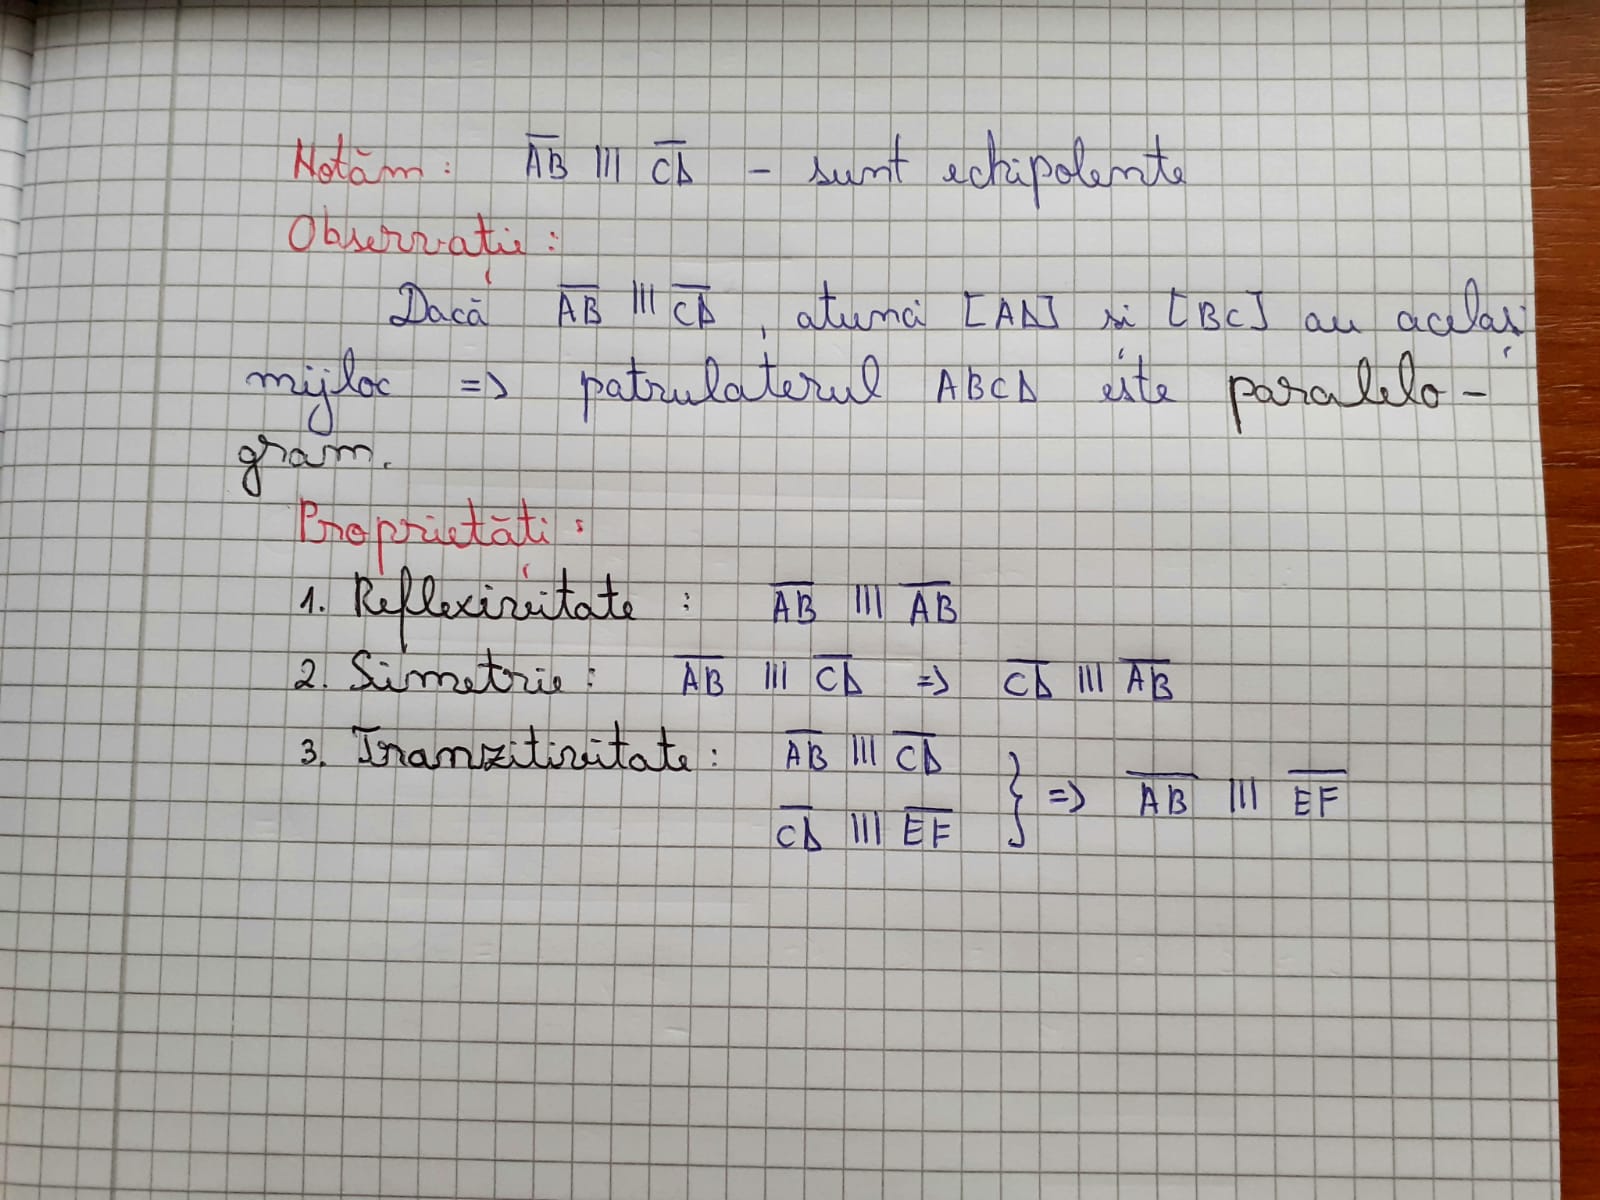 Notăm: A̅B̅ ||| C̅D̅ - sunt echipolente
Observație:
Dacă A̅B̅ ||| C̅D̅, atunci [AD] și [BC] au același
mijloc => patrulaterul ABCD este paralelo-
gram.
Proprietăți:
1. Reflexivitate: A̅B̅ ||| A̅B̅
2. Simetrie: A̅B̅ ||| C̅D̅ => C̅D̅ ||| A̅B̅
3. Tranzitivitate: A̅B̅ ||| C̅D̅
C̅D̅ ||| E̅F̅ } => A̅B̅ ||| E̅F̅